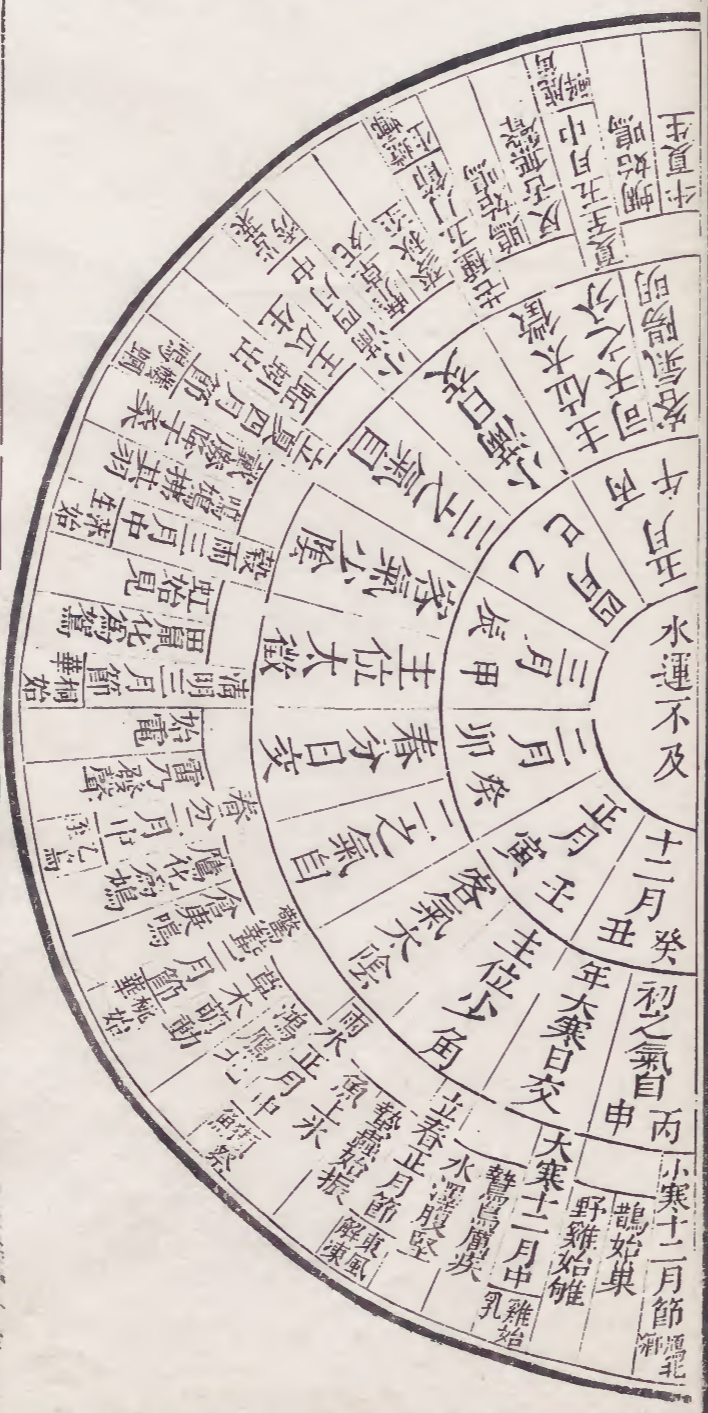 水運不及
十二月
癸
丑
正月
壬
寅
二月
癸
卯
三月
甲
辰
四月
乙
巳
五月
丙
午
初之氣自丙申
年大寒日交
主位少角
客氣太陰
二之氣自
春分日交
主位太徵
客氣少陰
三之氣自
小滿日交
主位太徵
司天之分
客氣陽明
小寒十二月節
鴈北鄉
鵲始巢
野雞始雊
大寒十二月中
雞始乳
鷙鳥厲疾
水澤腹堅
立春正月節
東風解凍
蟄蟲始振
魚上氷
雨水正月中
獺祭魚
鴻鴈北
草木萌動
驚蟄二月節
桃始華
倉庚鳴
鷹化為鳩
春分二月中
乙鳥至
雷乃發聲
始電
清明三月節
桐始華
田鼠化為鴽
虹始見
穀雨三月中
萍始生
鳴鳩拂其羽
戴勝降于桑
立夏四月節
螻蟈鳴
蚯蚓出
王瓜生
小滿四月中
苦菜秀
靡草死
麥秋至
芒種五月節
螳螂生
鵙始鳴
反舌無聲
夏至五月中
鹿角解
蜩始鳴
半夏生